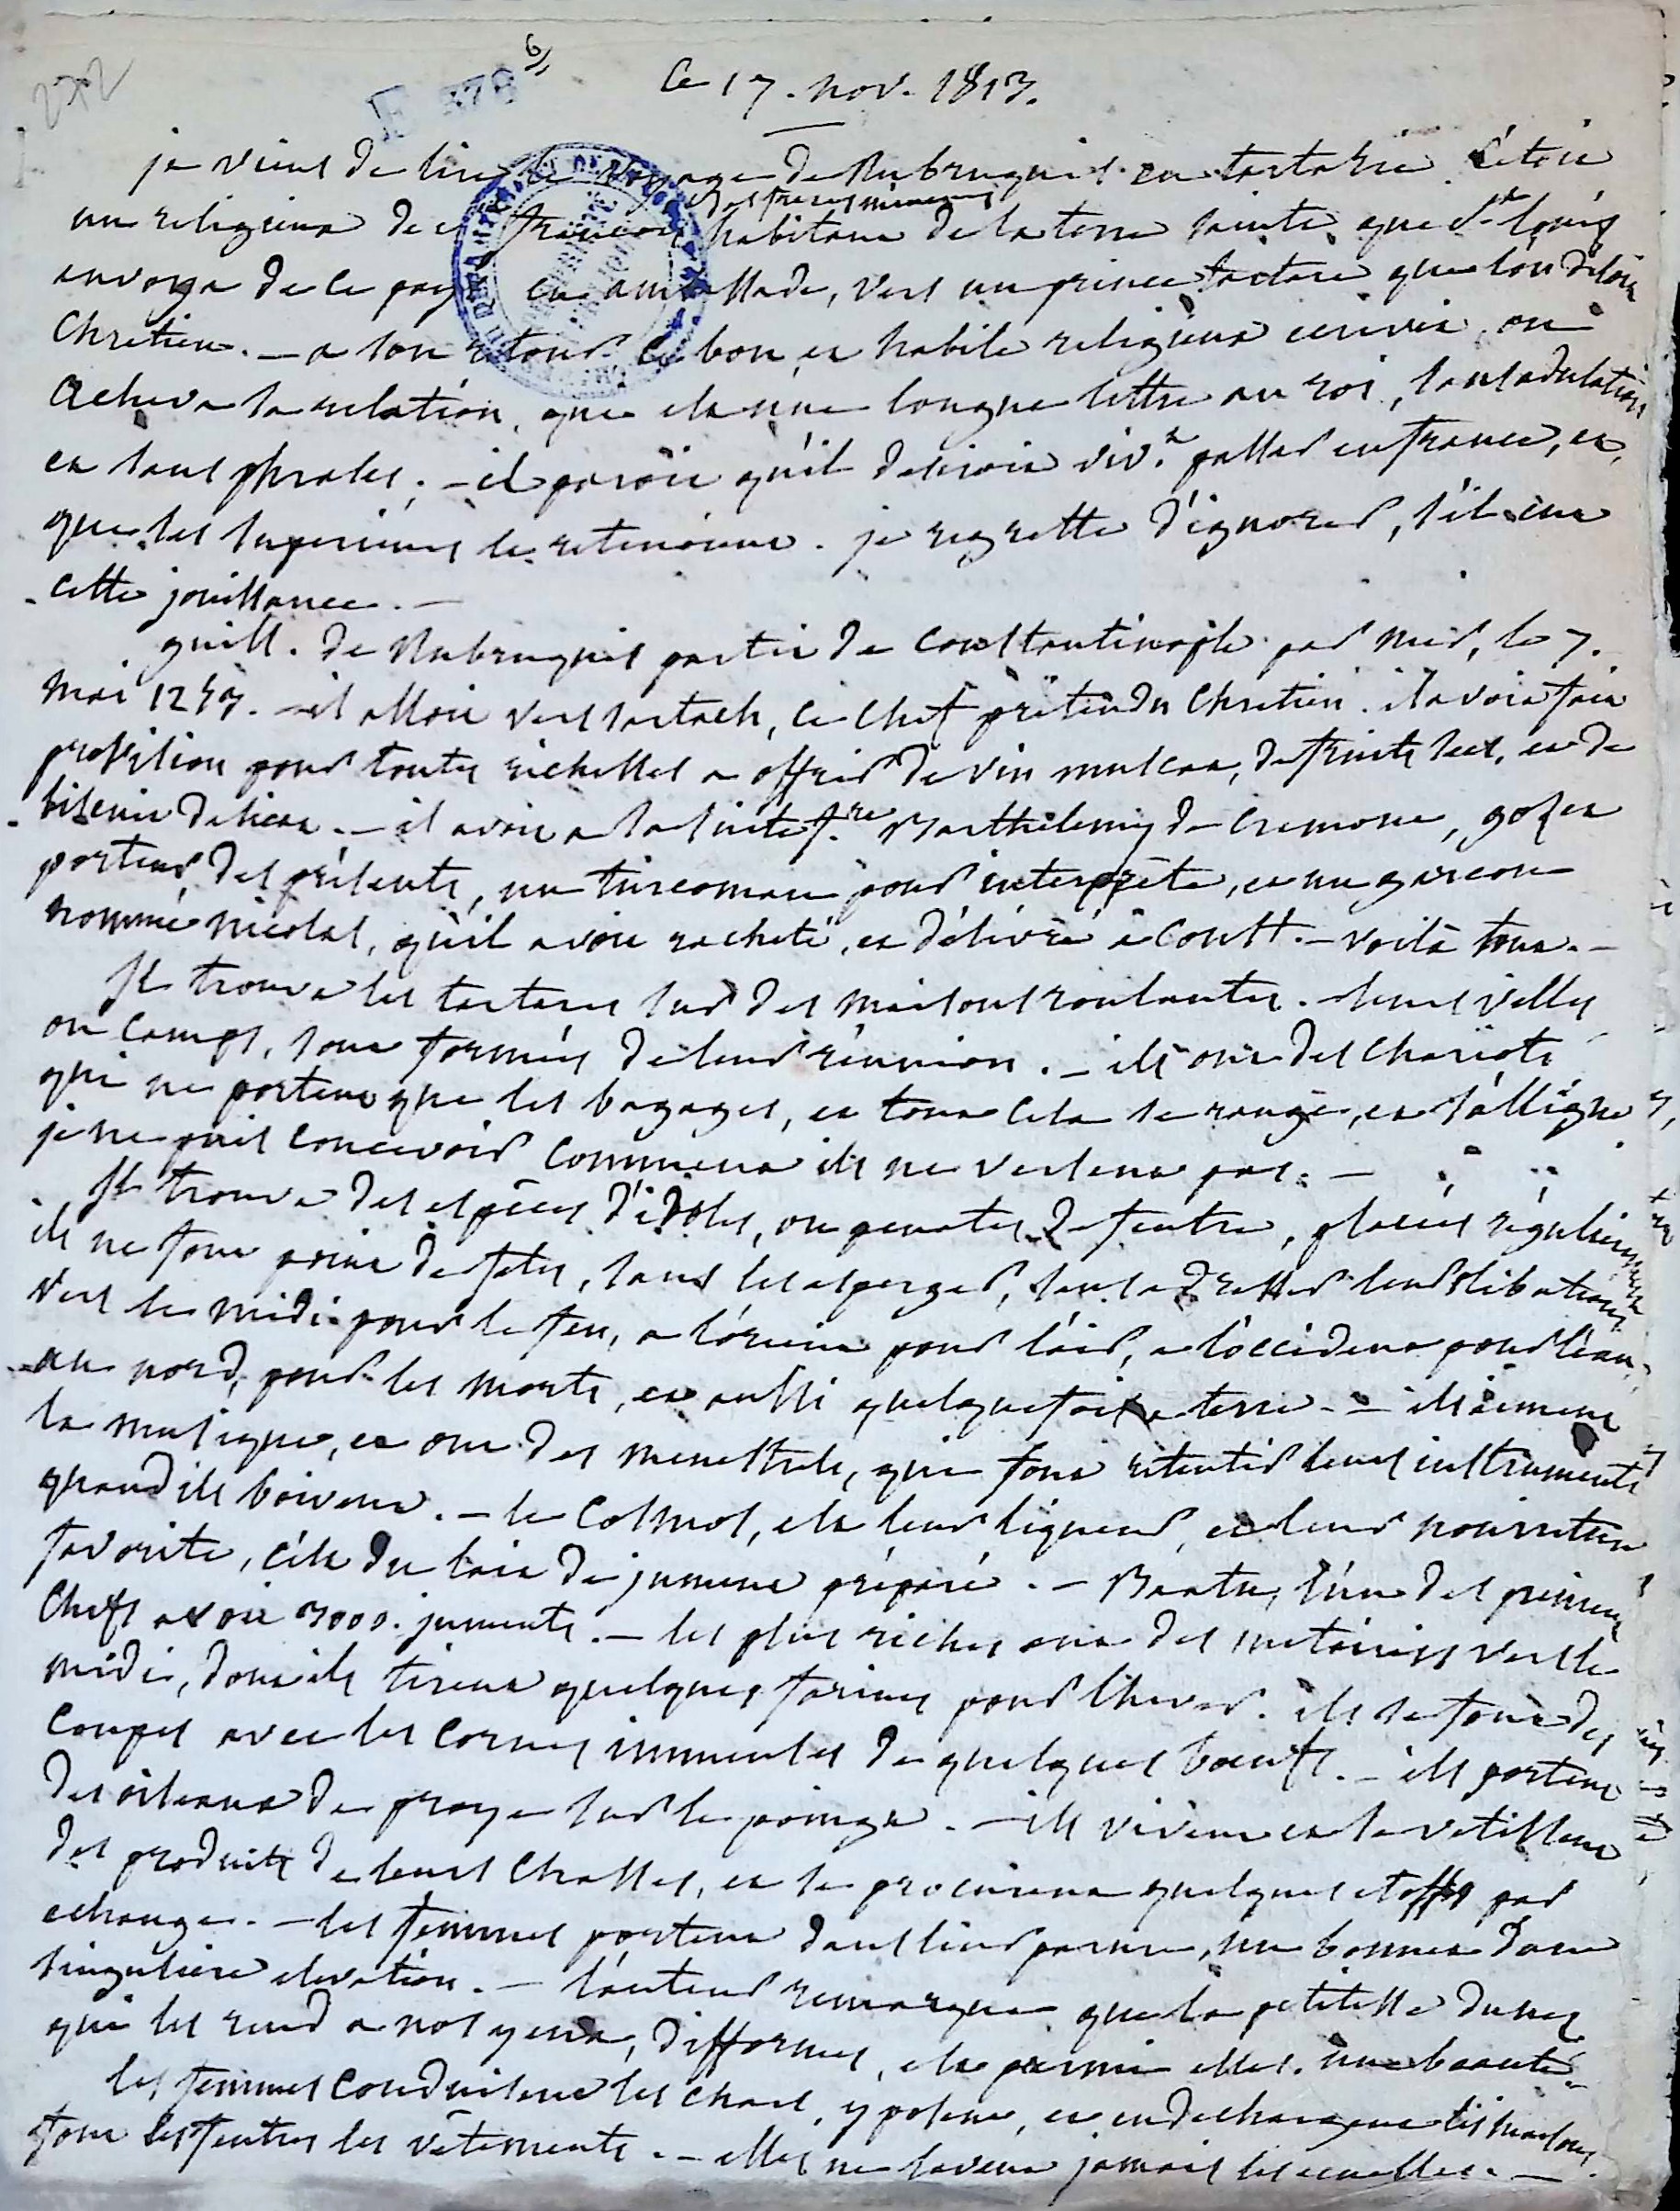 272
6
Ce 17. nov. 1813.
je viens de lire le voyage de Rubruquis en tartarie. C'étoit
des freres mineurs
un religieux de habitant de la terre sainte, que St. louis
envoya de ce pays en ambassade, vers un prince tartare que l'on disoit
Chretien. — a son retour ce bon, et habile religieux ecrivit, ou
acheva sa relation, qui est une longue lettre au roi, sans adulation
et sans phrases. — il paroit qu'il desiroit viv.t passer en france, et
que ses superieurs le retenoient. je regrette d'ignorer, s'il eut
cette jouissance. —
guill. de Rubruquis partit de Constantinople par mer, le 7.
mai 1253. — il alloit vers sartach, ce chef prétendu Chretien. il avoit fait
provision pour toutes richesses a offrir de vin muscat, de fruits secs, et de
biscuit delicat. — il avoit a sa suite f.re Barthélemy de Cremone, gozet
porteur des présents, un turcoman pour interprête, et un garcon
nommé nicolas, qu'il avoit racheté, et délivré à Const. — voilà tout. —
Il trouva les tartares sur des maisons roulantes. — leurs villes
ou camps, sont formées de leur réunion. — ils ont des chariots
qui ne portent que les bagages, et tout cela se range, et s'alligne
je ne puis concevoir comment ils ne versent pas. —
Il trouva des especes d'idoles, ou penates de feutre, placées régulierement
ils ne font point de fetes, sans les asperger, sans adresser leurs libations
vers le midi pour le feu, a l'orient pour l'air, a l'occident pour l'eau,
au nord, pour les morts, et aussi quelquefois a terre. — ils aiment
la musique, et ont des menestrels, qui font retentir leurs instruments
quand ils boivent. — le Cosmos, est leur liqueur, et leur nourriture
favorite, c'est du lait de jument préparé. — Baatu, l'un des premiers
Chefs avoit 3000. juments. — les plus riches ont des metairies vers le
midi, dont ils tirent quelques farines pour l'hiver. ils se font des
coupes avec les cornes immenses de quelques boeufs. — ils portent
des oiseaux de proye sur le poing. — ils vivent et se vetissent
des produits de leurs chasses, et se procurent quelques etoffes par
echange. — les femmes portent dans leur parure, un bonnet d'une
singuliere elevation. — l'auteur remarque que la petitesse du nez
qui les rend a nos yeux, difformes, est parmi elles une beauté.
les femmes conduisent les chars, y posent, et en dechargent les maisons,
font les feutres les vétements. — elles ne lavent jamais les ecuelles. —